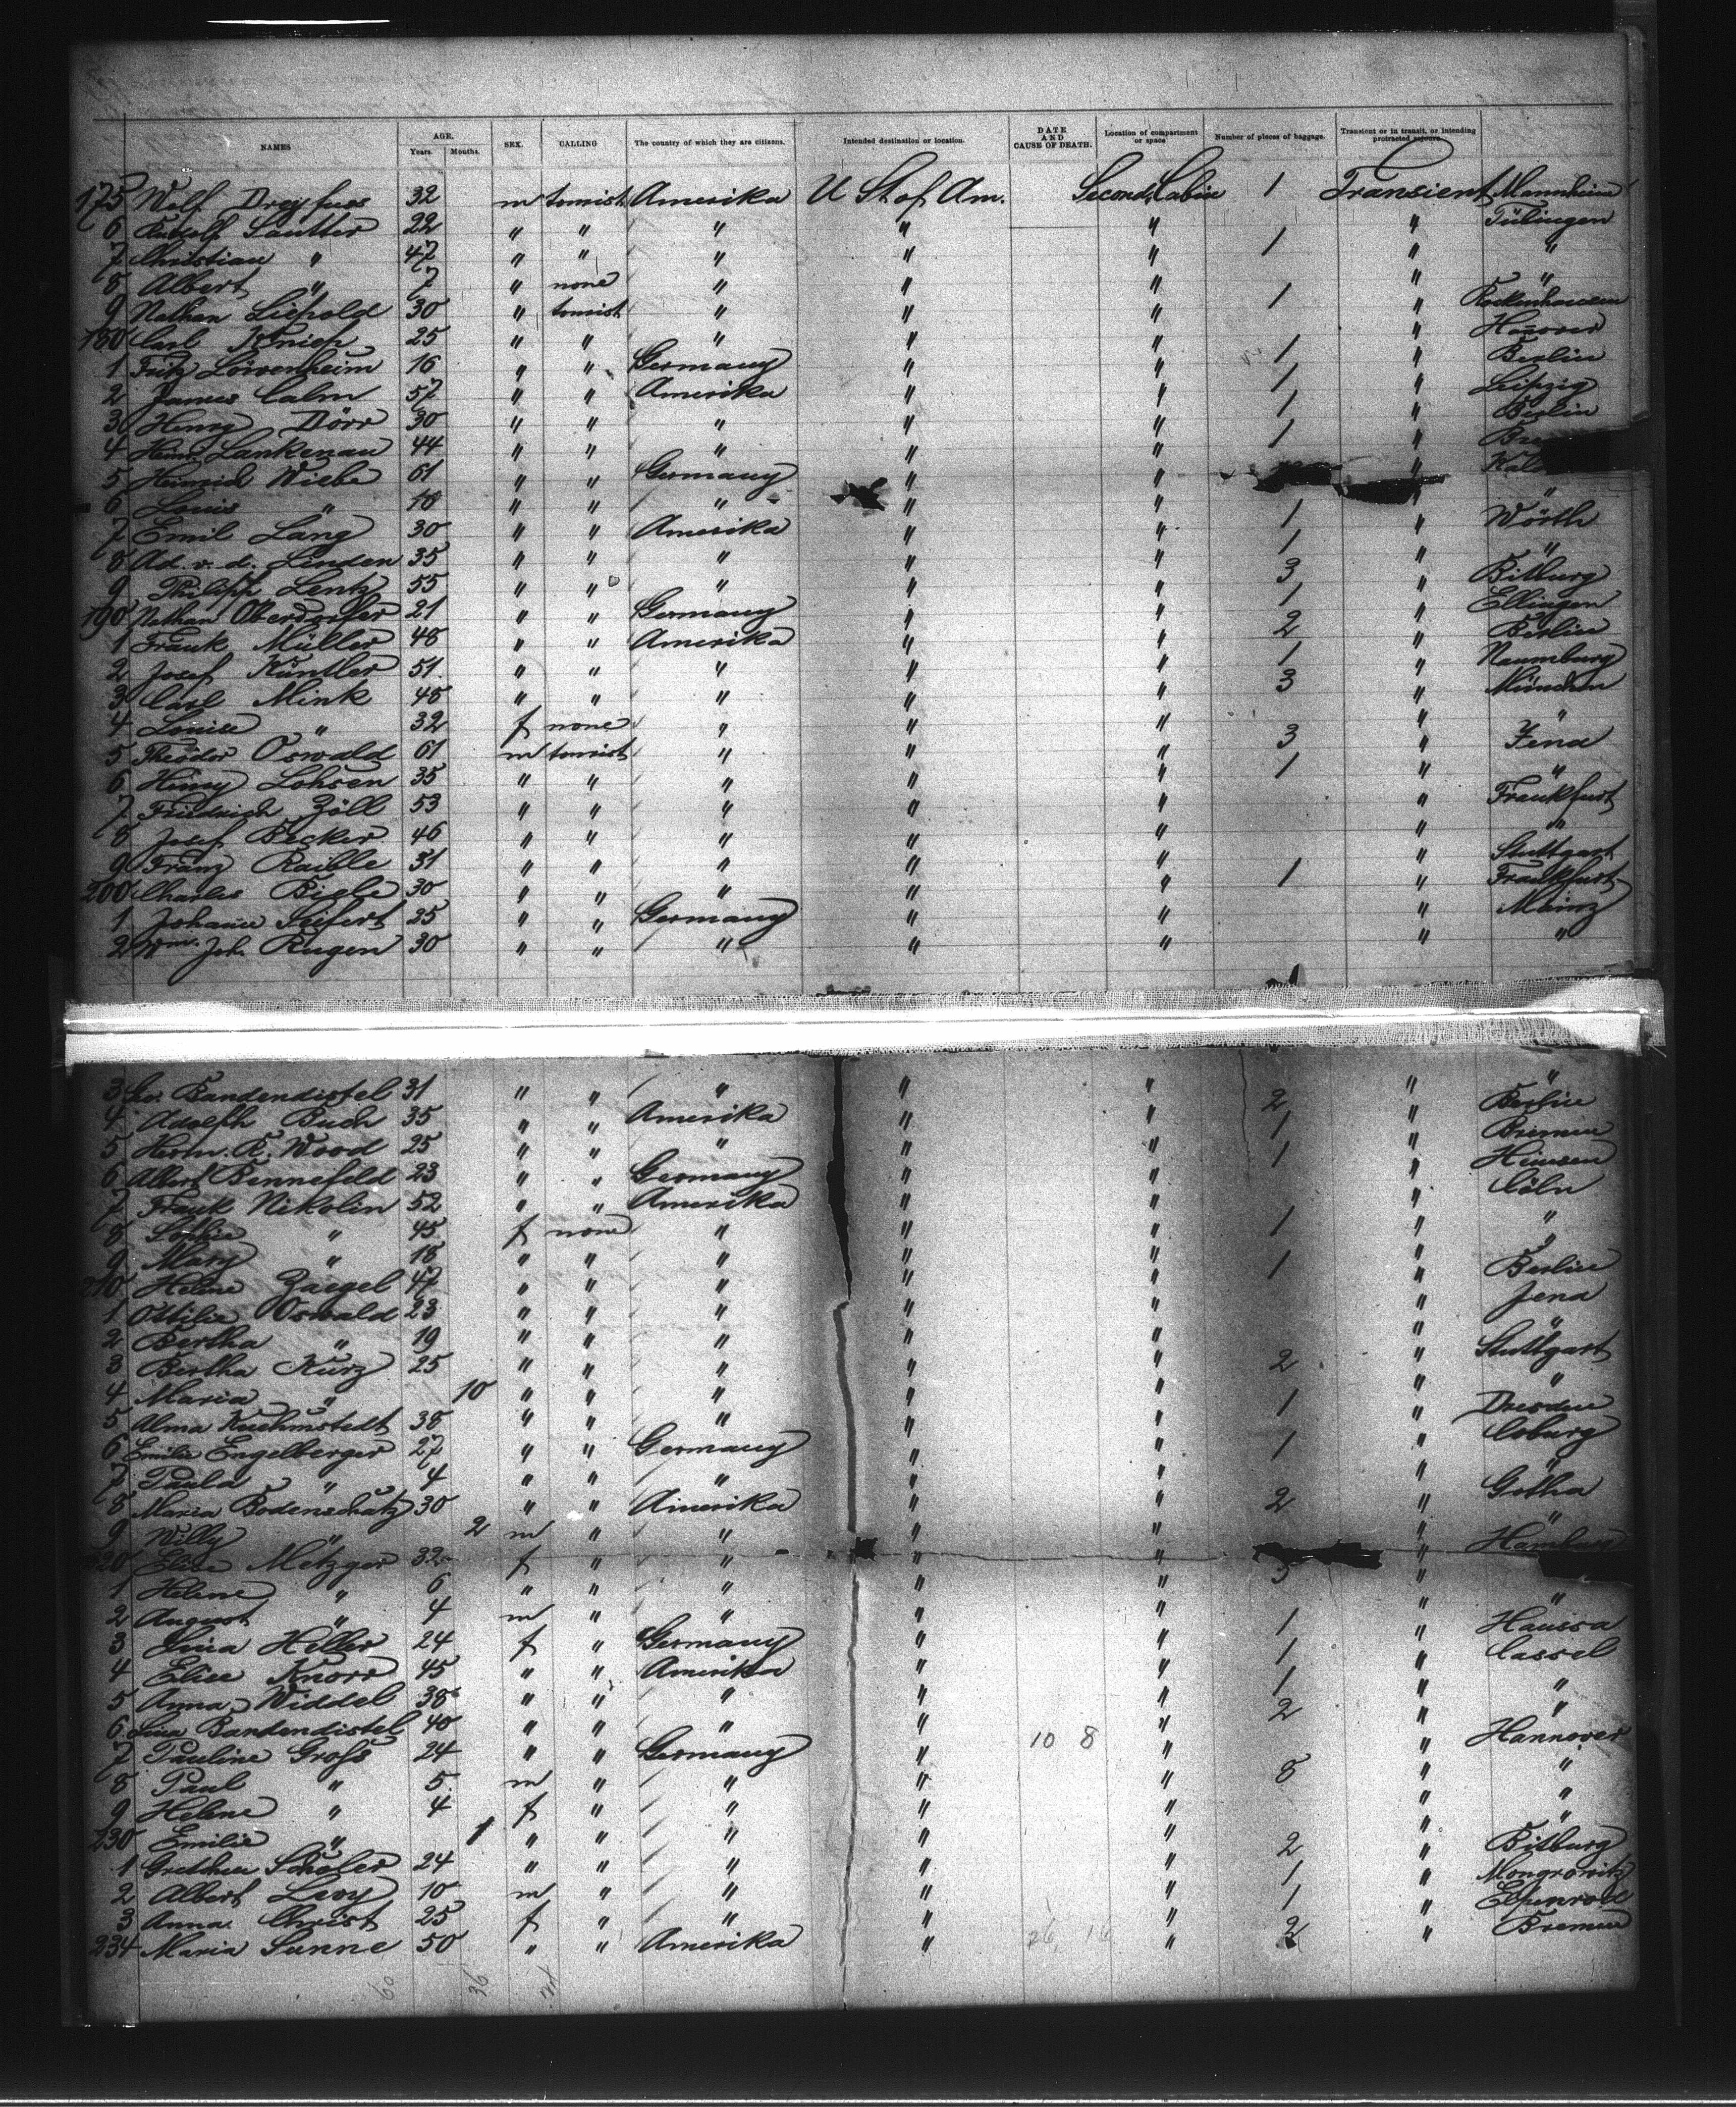 NAMES AGE. Years. Months. SEX. CALLING The country of which they are citizens. Intended destination or location. DATE AND CAUSE OF DEATH. Location of compartment or space Number of pieces of baggage. Transient or in transit, or intending protracted sojourn.
175 Wolf Dreyfuss 32 m tourist Amerika U St of Am. Second Cabin 1 Transient Mannheim
6 Rudolf Sautter 22 " " " " " " Tübingen
7 Christian " 47 " " " " " 1 " "
8 Albert " 7 " none " " " " "
9 Nathan Liepold 30 " tourist " " " 1 "
180 Carl 25 " " " " " "
1 Fritz Löwenheim 16 " " Germany " " 1 " Berlin
2 James Calm 57 " " Amerika " " 1 " Leipzig
3 Henry Dörr 30 " " " " " 1 " Berlin
4 Heinr. Lankenau 44 " " " " " 1 "
5 Heinrich Wiebe 61 " " Germany " " "
6 Louis " 18 " " " " " " "
7 Emil Lang 30 " " Amerika " " 1 " Wörth
8 Ad. v. d. Linden 35 " " " " " 1 " "
9 Philipp Lentz 55 " " " " " 3 " Bitburg
190 Nathan Oberdorfer 21 " " Germany " " 1 " Ellingen
1 Frank Müller 48 " " Amerika " " 2 " Berlin
2 Josef Küntler 51 " " " " " 1 " Naumburg
3 Carl Mink 48 " " " " " 3 " München
4 Louise " 32 f none " " " " "
5 Theodor Oswald 61 m tourist " " " 3 " Jena
6 Henry Lohsen 35 " " " " " 1 " "
7 Friedrich Zöll 53 " " " " " " Frankfurt
8 Josef Becker 46 " " " " " " "
9 Franz Raible 31 " " " " " " Stuttgart
200 Charles 30 " " " " " 1 " Frankfurt
1 Johann Seifert 25 " " Germany " " " Mainz
2 Wm. Joh. Rugen 30 " " " " " " "
3 Bandendistel 31 " " " " " " "
4 Adolph Buch 35 " " Amerika " " 2 " Berlin
5 Herm. R. Wood 25 " " " " " 1 " Bremen
6 Albert Bennefeld 23 " " Germany " " 1 "
7 Frank Nikolin 52 " " Amerika " " " Cöln
8 Sophie " 45 f none " " " 1 " "
9 Mary " 18 " " " " " " "
210 Helene Zaegel 47 " " " " " 1 " Berlin
1 Ottilie Oswald 23 " " " " " " Jena
2 Bertha " 19 " " " " " " "
3 Bertha Kurz 25 " " " " " 2 " Stuttgart
4 Maria " 10 " " " " " " "
5 Alma Kuehmstedt 38 " " " " " 1 " Dresden
6 Emilie Engelberger 27 " " Germany " " 1 " Coburg
7 Paula " 4 " " " " " " "
8 Maria Bodenschatz 30 " " Amerika " " 2 " Gotha
9 Willy " 2 m " " " " " "
220 Elise Metzger 32 f " " " " " Hamburg
1 Helene " 6 " " " " " "
2 August " 4 m " " " " " "
3 Lina Heller 24 f " Germany " " 1 " Haussa
4 Elise Knorr 45 " " Amerika " " 1 " Cassel
5 Anna Widdel 38 " " " " " 1 " "
6 Lina Bandendistel 40 " " " " " 2 "
7 Pauline Gross 24 " " Germany " 10 8 " " Hannover
8 Paul " 5 m " " " " 8 " "
9 Helene " 4 f " " " " " "
230 Emilie " 1 " " " " " " "
1 Gretchen Schäler 24 " " " " " 2 " Bitburg
2 Albert Levy 10 m " " " " 1 "
3 Anna Christ 25 f " " " " 1 " Elpenrod
234 Maria Sunne 50 " " Amerika " 26 16 " 2 " Bremen
60 36